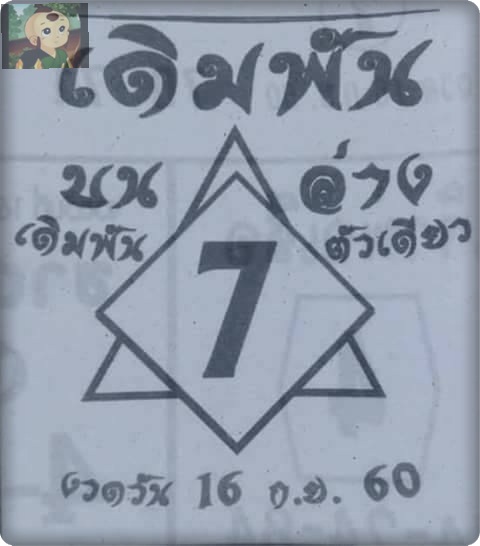 เดิมพัน
บน ล่าง
เดิมพัน ตัวเดียว
7
งวดวัน 16 ก.ย. 60